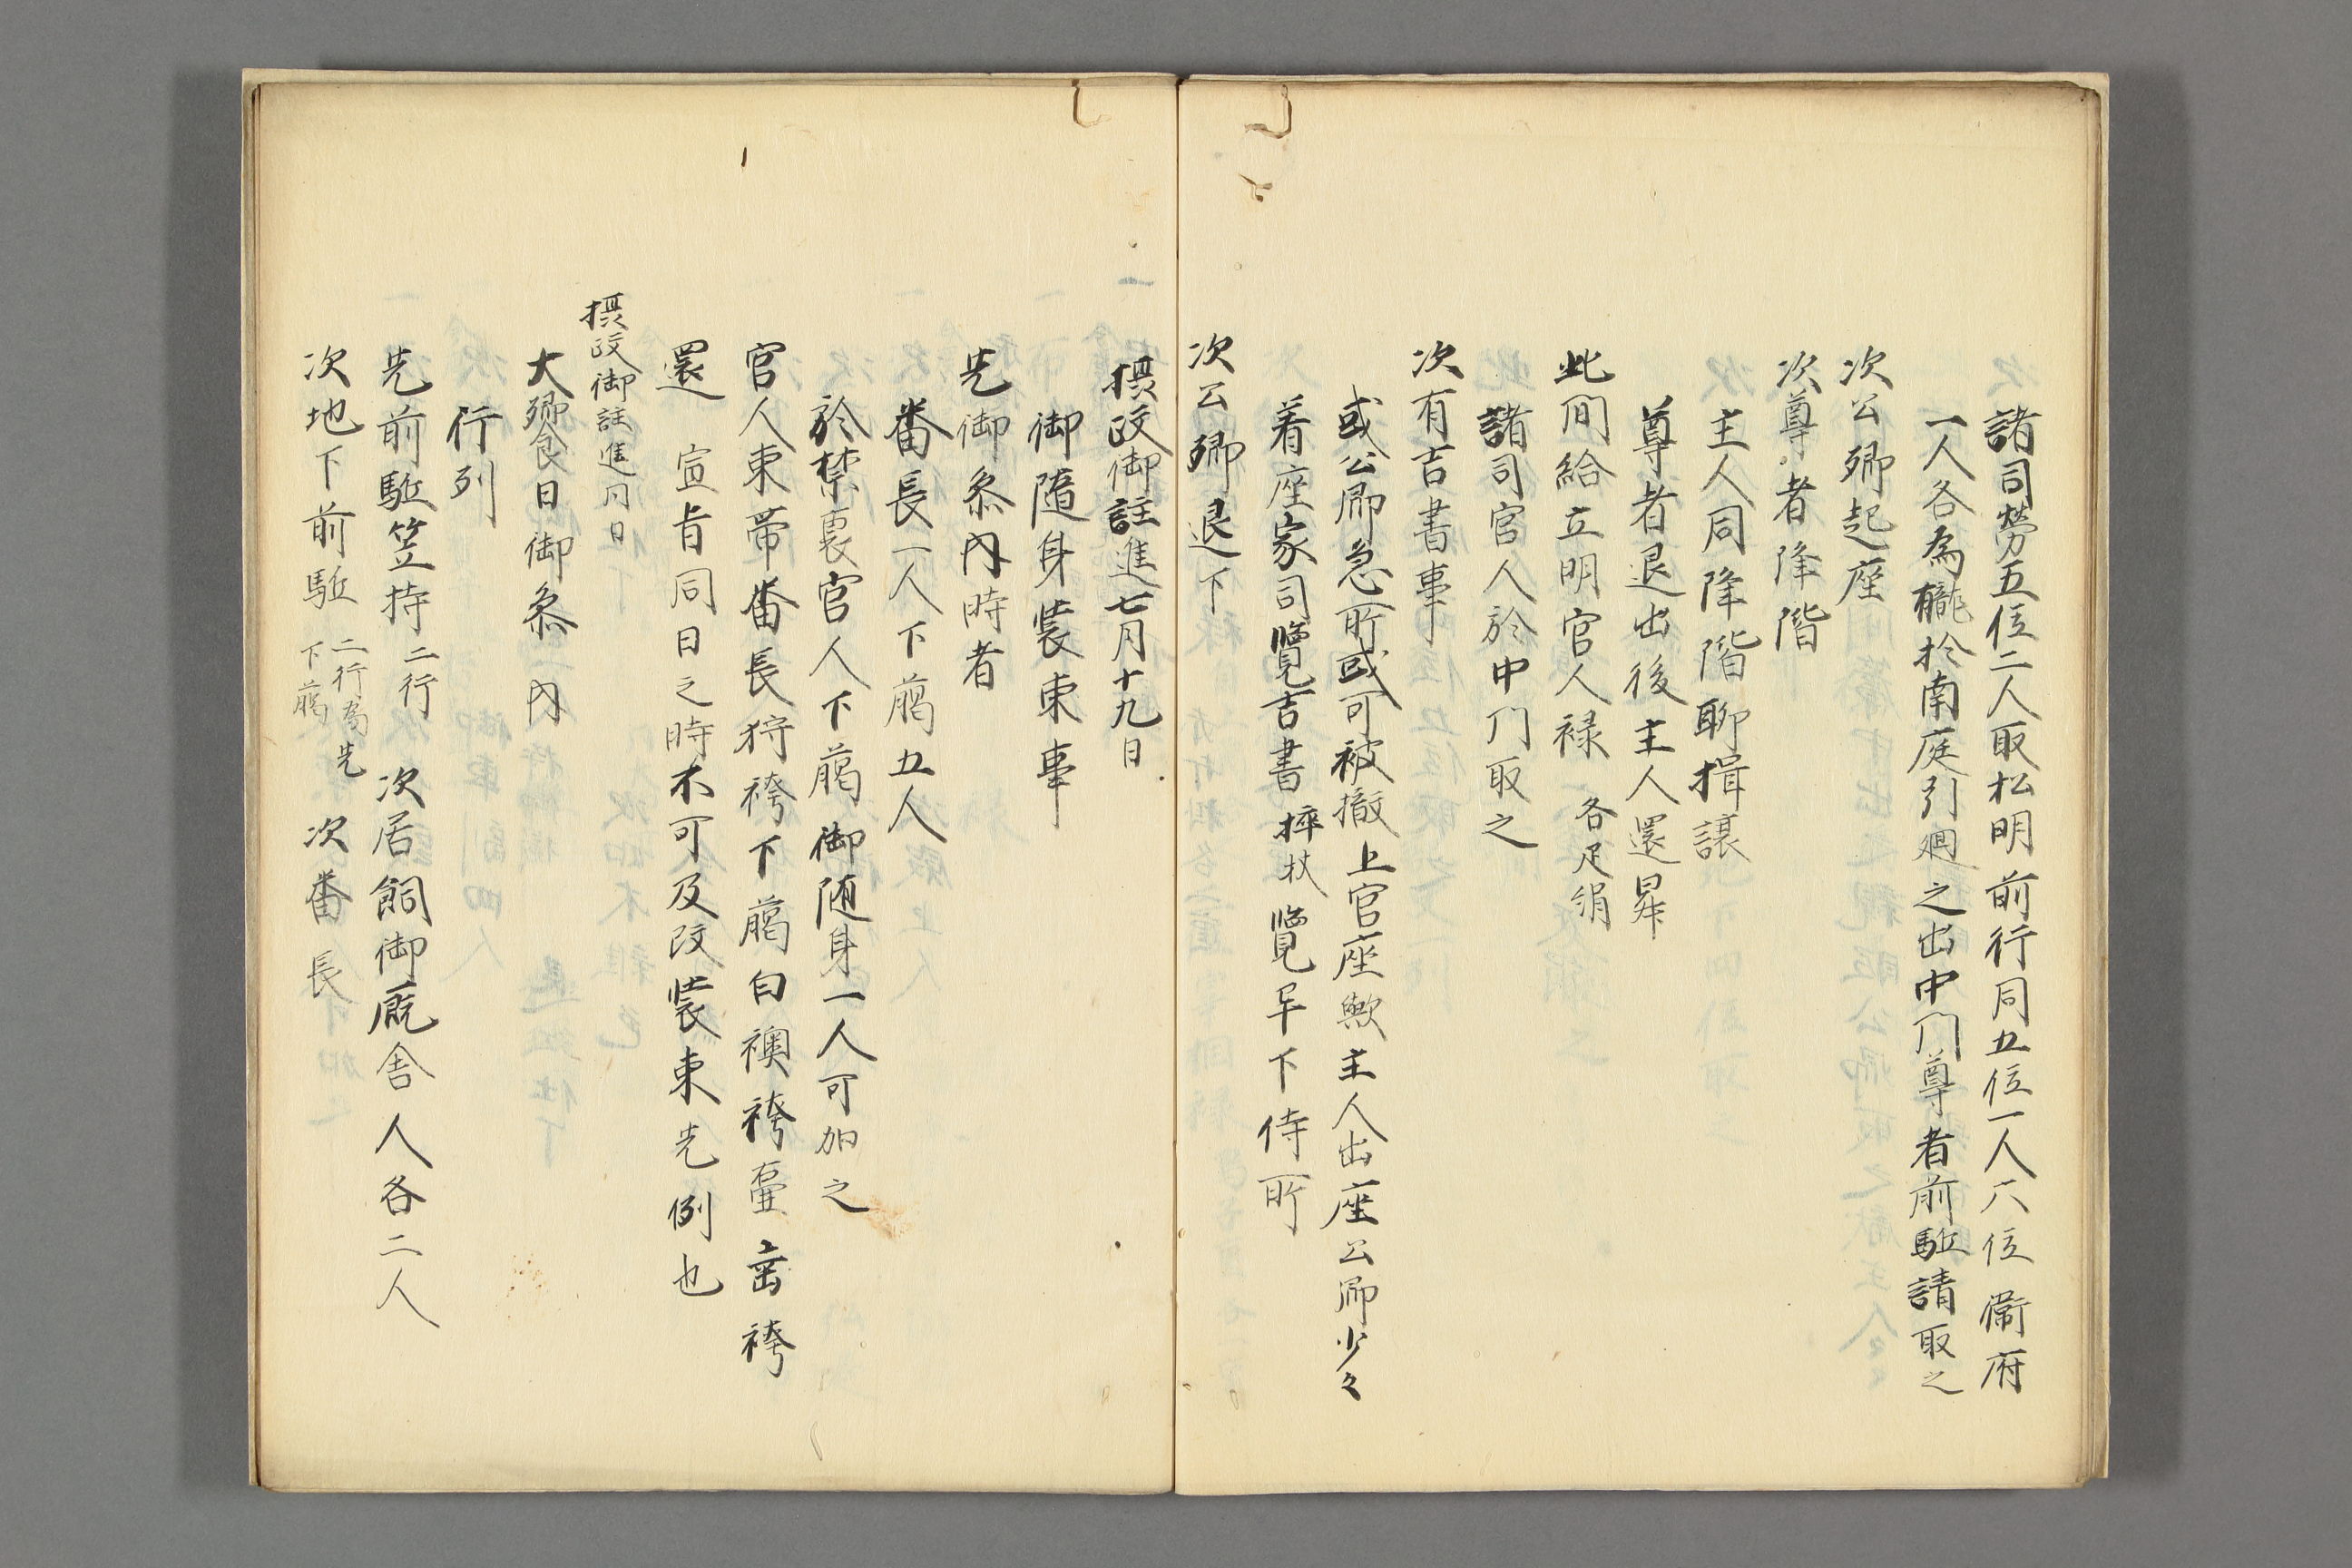 諸司労五位二人取松明前行同五位一人六位衛府
一人各為櫳於南庭引廻之出中门尊者前駈請取之
次公卿起座
次尊者降階
主人同降階聊揖譲
尊者退出後主人還昇
此间給立明官人禄 各疋絹
諸司官人於中门取之
次有吉書事
或公卿急所或可被撤上官座歟主人出座公卿少々
着座家司覧吉書 挿杖 覧畢下侍所
次公卿退下
摂政御註進七月十九日
御随身装束事
先御参内時者
番長一人下﨟五人
於禁裏官人下﨟御随身一人可加之
官人束帯番長狩袴下﨟白襖袴壷脛袴
還 宣旨同日之時不可及改装束先例也
摂政御註進同日
大饗日御参内
行列
先前駈笠持 二行 次居飼御厩舎人各二人
次地下前駈 二行為先下﨟 次番長